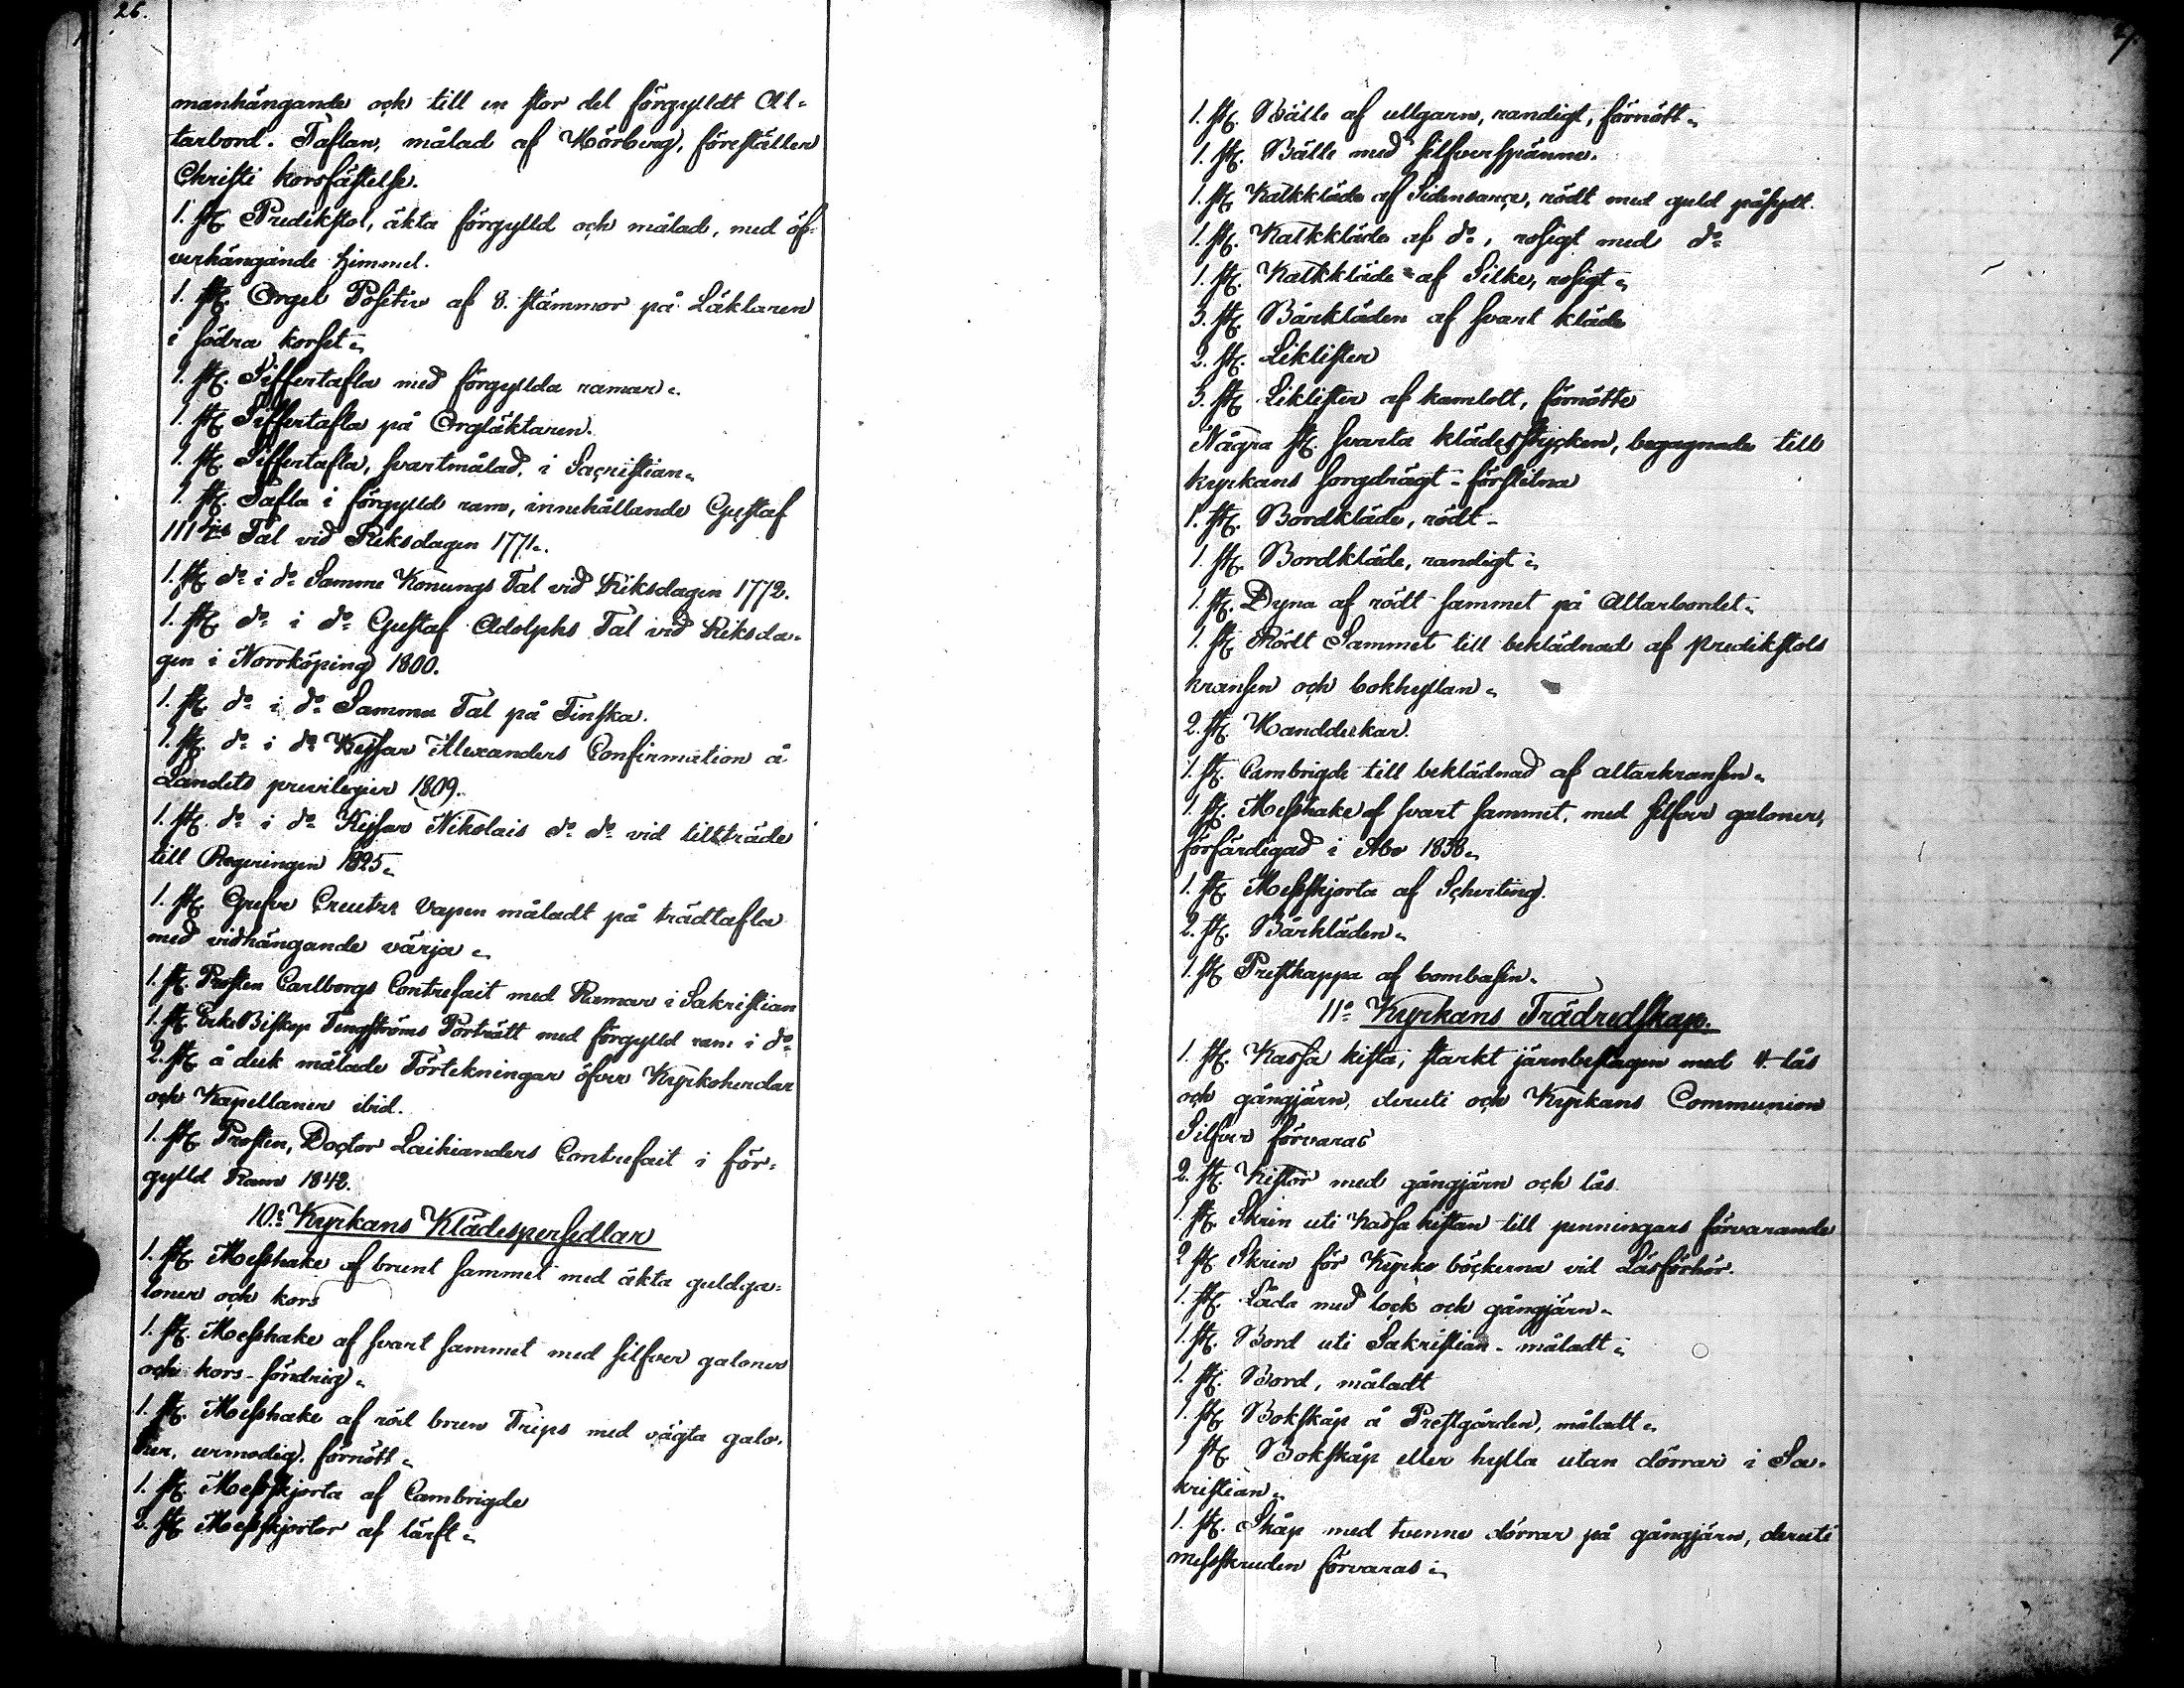 26.
manhängande och till en stor del förgylldt Al-
tarbord. Taflan, målad af Hörberg, föreställer
Christi korsfästelse.
1. st. Predikstol, äkta förgylld och målad, med öf-
verhängande himmel.
1. st. Orgel Positiv af 8. stämmor på Läktaren
i södra korset.
1. st. Siffertafla med förgyllda ramar.
1. st. Siffertafla på Orgläktaren.
1. st. Siffertafla, svartmålad, i Sacristian.
1. st. Tafla i förgylld ram, innehållande Gustaf
III djes Tal vid Riksdagen 1771.
1. st. do i do Samme Konungs Tal vid Riksdagen 1772.
1. st. do i do Gustaf Adolphs Tal vid Riksda-
gen i Norrköping 1800.
1. st. do i do Samma Tal på Finska.
1. st. do i do Kejsar Alexanders Confirmation å
Landets privilegier 1809.
1. st. do i do Kejsar Nikolais do do vid tillträde
till Regeringen 1825.
1. st. Grefve Creutzs Vapen måladt på trädtafla
med vidhängande värja.
1. st. Prosten Carlborgs Contrefait med Ramar i Sakristian
1. st. ErkeBiskop Tengströms Porträtt med förgylld ram i do
2. st. å duk målade Förtekningar öfver Kyrkoherdar
och Kapellaner ibid.
1. st. Prosten, Doctor Laihianders Contrefait i för-
gylld Ram 1842.
10.o Kyrkans Klädespersedlar
1. st. Messhake af brunt sammet med äkta guldga-
loner och kors
1. st. Messhake af svart sammet med silfver galoner
och kors-
1. st. Messhake af röd brun Trips med oägta galo-
ner, urmodig, förnött.
1. st. Messkjorta af Cambrigde
2. st. Messkjortor af lärft.
1. st. Bälte af ullgarn, randigt, förnött.
1. st. Bälte med silfverspänne.
1. st. Kalkkläde af Sidensarge, rödt med guld påsydt.
1. st. Kalkkläde af do, rosigt med do
1. st. Kalkkläde af Silke, rosigt.
3. st. Bårkläden af svart kläde
2. st. Liklister
3. st. Liklister af kamlott, förnötte
Några st. svarta klädesstycken, begagnade till
kyrkans sorgdrägt - förslitna
1. st. Bordkläde, rödt -
1. st. Bordkläde, randigt.
1. st. Dyna af rödt sammet på Altarbordet.
1. st. Rödt Sammet till beklädnad af predikstols
kransen och bokhyllan.
2. st. Handdukar.
1. st. Cambrigde till beklädnad af altarkransen.
1. st. Messhake af svart sammet, med silfver galoner,
förfärdigad i Åbo 1838.
1. st. Messkjorta af Schirting.
2. st. Bårkläden.
1. st. Prestkappa af bombasin.
11.o Kyrkans Trädredskap.
1. st. Kassa kista, starkt järnbeslagen med 4. lås
och gångjärn, deruti och Kyrkans Communion
Silfver förvaras
2. st. Kistor med gångjärn och lås.
1. st. Skrin uti Kassa kistan till penningars förvarande
2 st. Skrin för Kyrko böckerna vid Läsförhör.
1. st. Låda med lock och gångjärn.
1. st. Bord uti Sakristian - måladt.
1. st. Bord, måladt
1. st. Bokskåp å Prestgården, måladt.
1 st. Bokskåp eller hylla utan dörrar i Sa-
kristian.
1. st. Skåp med tvenne dörrar på gångjärn, deruti
messkruden förvaras.